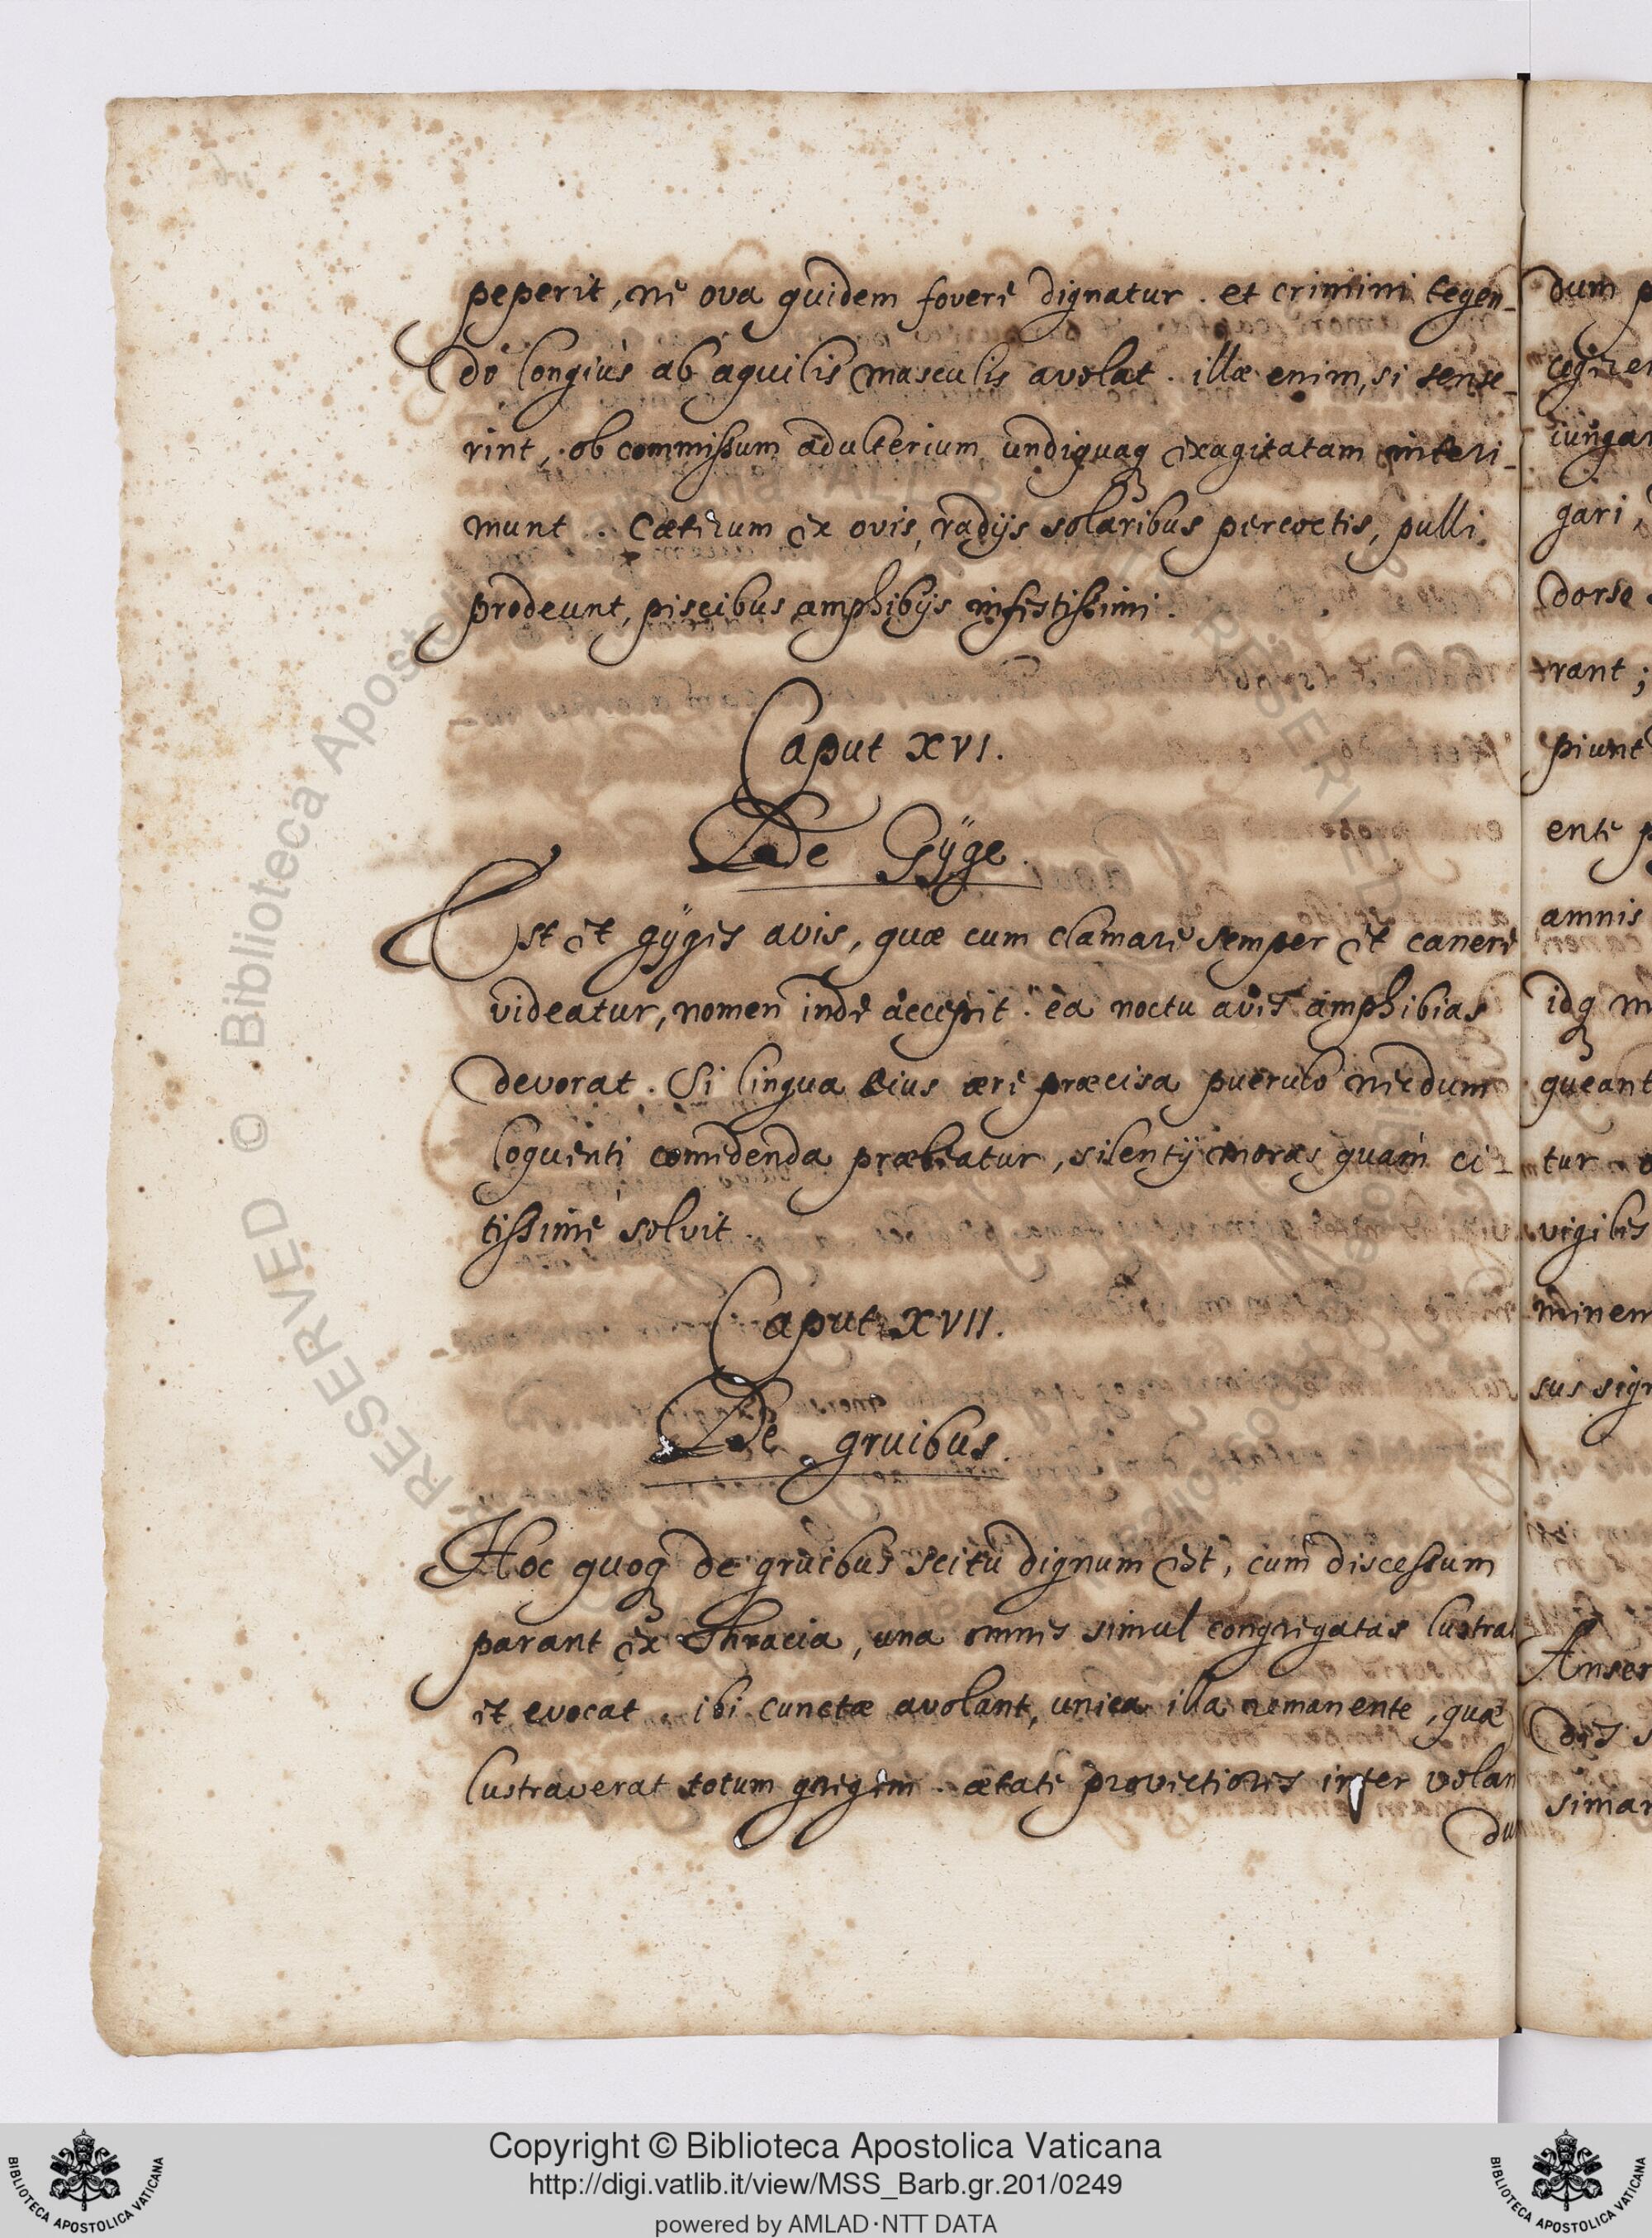 peperit, ne ova quidem fovere dignatur. et crimini tegen-
do longiùs ab aquilis masculis avolat. illæ enim, si sense-
rint, ob commissum adulterium undiquaq exagitatam interi-
munt. Cæterum ex ovis, radijs solaribus percoctis, pulli
prodeunt, piscibus amphibijs infestissimi.
Caput XVI.
De Gÿge.
Est et gÿges avis, quæ cum clamare semper et canere
videatur, nomen inde accepit. ea noctu aves amphibias
devorat. Si lingua eius ære præcisa puerulo necdum
loquenti comedenda præbeatur, silentij moras quàm ci-
tissimè solvit.
Caput XVII.
De gruibus.
Hoc quoq de gruibus scitu dignum est, cum discessum
parant ex Thracia, una omnes simul congregatas lustrat
et evocat. ibi cunctæ avolant, unica illa remanente, quæ
lustraverat totum gregem. ætate provectiores inter volan
du
dum
iungar
gari
dorso
rant;
piunt
ente
amnis
idq
queant
tur
vigiles
minem
Anser
simar
© Biblioteca Apostolica Vaticana ALL RIGHTS RESERVED
BIBLIOTECA APOSTOLICA VATICANA
Copyright © Biblioteca Apostolica Vaticana
http://digi.vatlib.it/view/MSS_Barb.gr.201/0249
powered by AMLAD·NTT DATA
BIBLIOTECA APOSTOLICA VATICANA